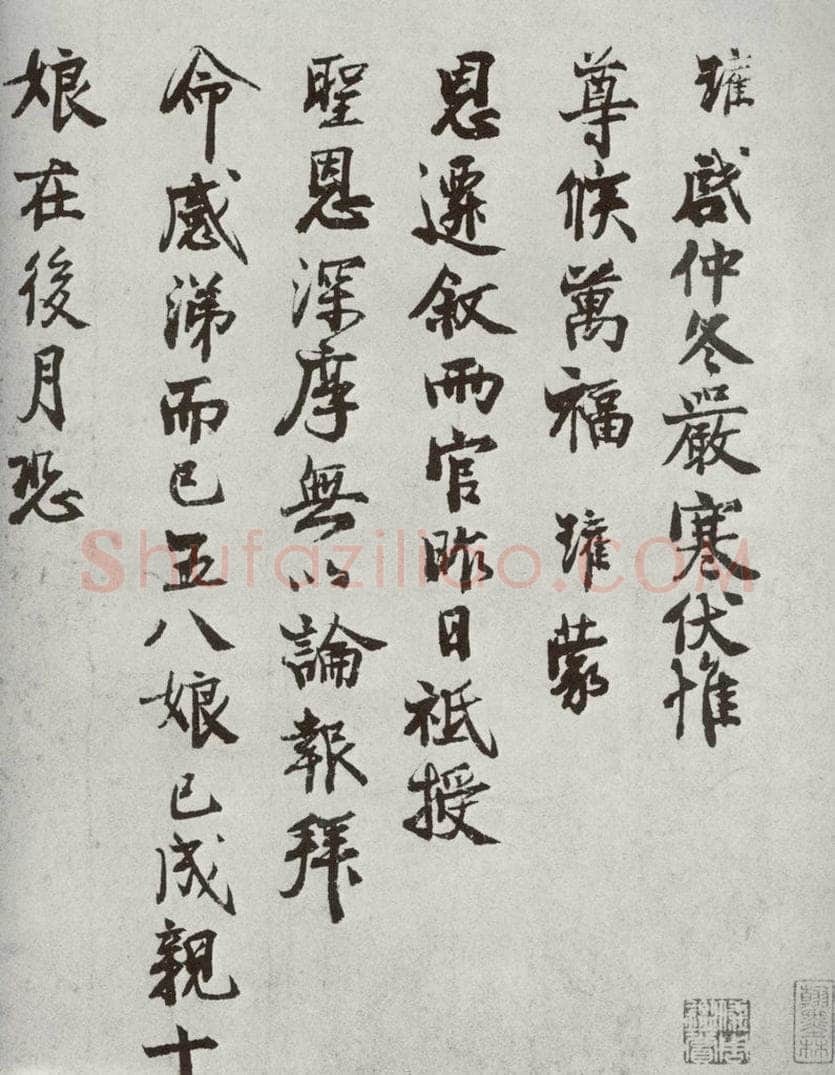 瓘啓仲冬嚴寒伏惟
尊候萬福 瓘蒙
恩遷叙兩官昨日祗授
聖恩深摩無以論報拜
命感涕而已五八娘已成親十
娘在後月恐
Shufaziliao.COM
翰墨林